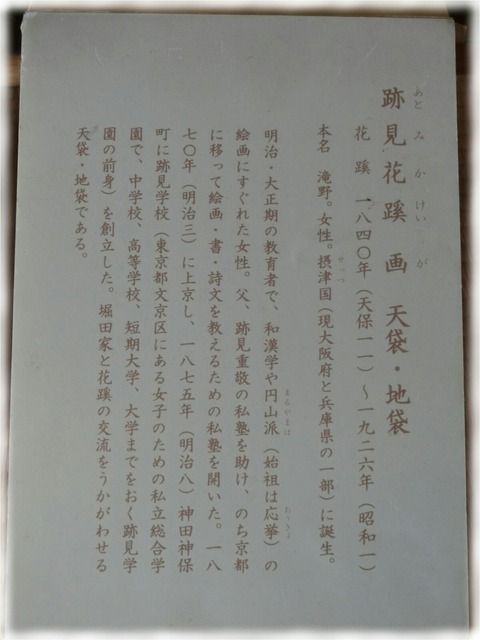 跡見花蹊画　天袋・地袋
あとみかけいが
花　蹊　一八四〇年（天保一一）～一九二六年（昭和一）
本名　滝野。女性。摂津国（現大阪府と兵庫県の一部）に誕生。
せっつ
明治・大正期の教育者で、和漢学や円山派（始祖は応挙）の
まるやまは
おうきょ
絵画にすぐれた女性。父、跡見重敬の私塾を助け、のち京都
に移って絵画・書・詩文を教えるための私塾を開いた。一八
七〇年（明治三）に上京し、一八七五年（明治八）神田神保
町に跡見学校（東京都文京区にある女子のための私立総合学
園で、中学校、高等学校、短期大学、大学までをおく跡見学
園の前身）を創立した。堀田家と花蹊の交流をうかがわせる
天袋・地袋である。